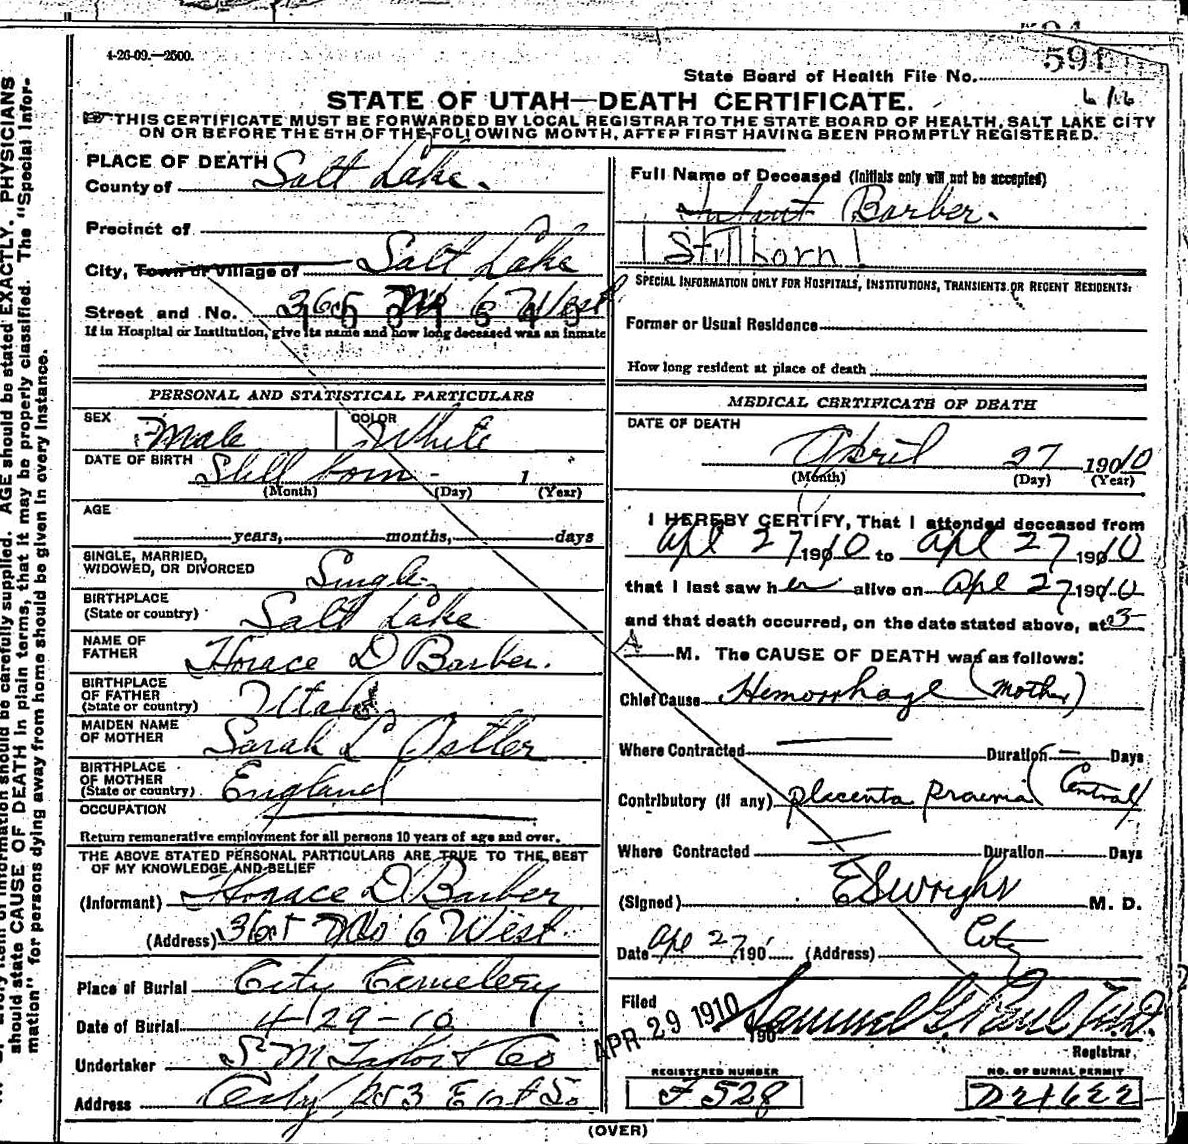 4-26-09.—2500.
591
State Board of Health File No.
STATE OF UTAH—DEATH CERTIFICATE.
THIS CERTIFICATE MUST BE FORWARDED BY LOCAL REGISTRAR TO THE STATE BOARD OF HEALTH, SALT LAKE CITY
ON OR BEFORE THE 5TH OF THE FOLLOWING MONTH, AFTER FIRST HAVING BEEN PROMPTLY REGISTERED.
PLACE OF DEATH
County of Salt Lake.
Precinct of
City, Town or Village of Salt Lake
Street and No. 365 No 6 West
If in Hospital or Institution, give its name and how long deceased was an inmate
PERSONAL AND STATISTICAL PARTICULARS
SEX Male COLOR White
DATE OF BIRTH Still born - 1
(Month) (Day) (Year)
AGE
years, months, days
SINGLE, MARRIED,
WIDOWED, OR DIVORCED Single
BIRTHPLACE
(State or country) Salt Lake
NAME OF
FATHER Horace D Barber.
BIRTHPLACE
OF FATHER
(State or country) Utah
MAIDEN NAME
OF MOTHER Sarah L Ostler
BIRTHPLACE
OF MOTHER
(State or country) England
OCCUPATION
Return remunerative employment for all persons 10 years of age and over.
THE ABOVE STATED PERSONAL PARTICULARS ARE TRUE TO THE BEST
OF MY KNOWLEDGE AND BELIEF
(Informant) Horace D Barber
(Address) 365 No 6 West.
Place of Burial City Cemetery
Date of Burial 4-29-10
Undertaker S M Taylor & Co
Address City 253 East So
Full Name of Deceased (Initials only will not be accepted)
Infant Barber.
Stillborn
SPECIAL INFORMATION ONLY FOR HOSPITALS, INSTITUTIONS, TRANSIENTS OR RECENT RESIDENTS:
Former or Usual Residence
How long resident at place of death
MEDICAL CERTIFICATE OF DEATH
DATE OF DEATH
April 27 19010
(Month) (Day) (Year)
I HEREBY CERTIFY, That I attended deceased from
Apl 27 19010 to Apl 27 19010
that I last saw her alive on Apl 27 19010
and that death occurred, on the date stated above, at 3
A M. The CAUSE OF DEATH was as follows:
Chief Cause Hemorrhage (Mother)
Where Contracted Duration Days
Contributory (if any) Placenta Praevia (Central)
Where Contracted Duration Days
(Signed) E S Wright M. D.
Date Apl 27, 190 (Address) City
Filed APR 29 1910 190 Samuel G. Paul M.D.
Registrar.
REGISTERED NUMBER NO. OF BURIAL PERMIT
F 528 D21622
(OVER)
should state CAUSE OF DEATH in plain terms, that it may be properly classified. The "Special Infor-
mation" for persons dying away from home should be given in every instance.